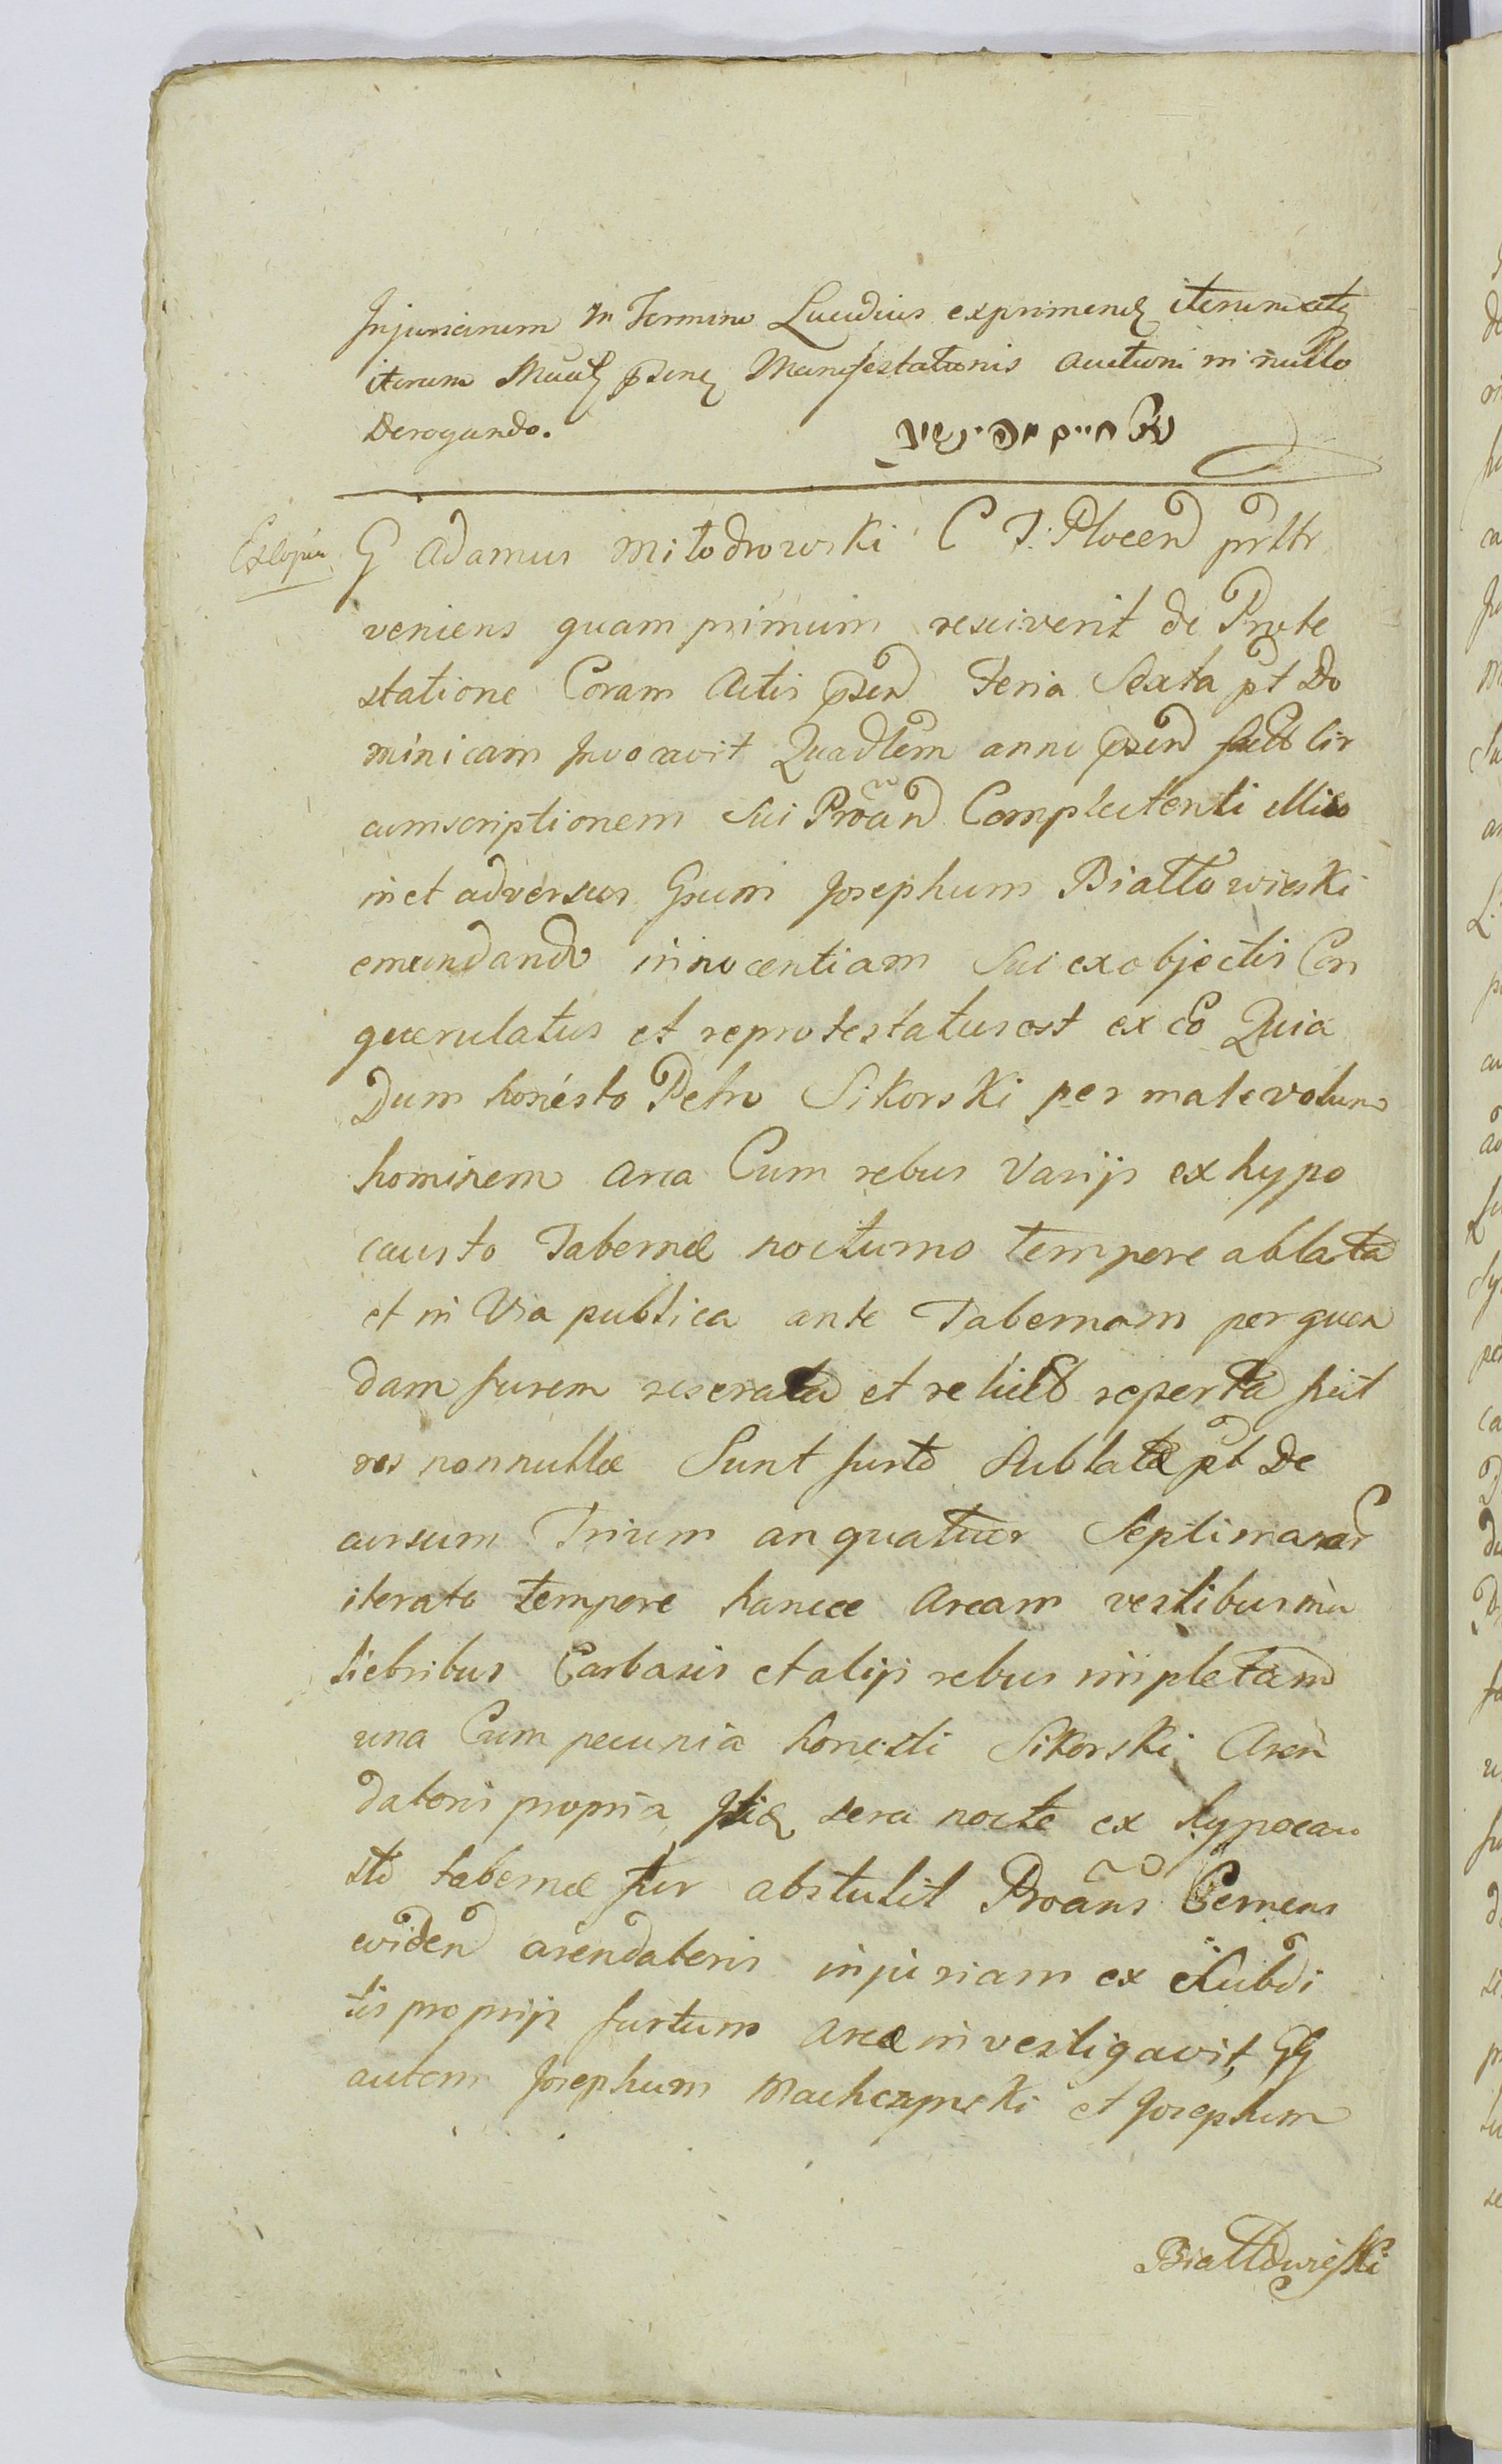 Injuriarum in Termino Lucidius exprimend iterumatq
iterum Mund psend Manifestationis Auctioni in nullo
Derogando.
Excopia
G Adamus Miłodrowski C T: Plocen prltr
veniens quam primum resciverit de Prote
statione Coram Actis psen Feria Sexta pt Do
minicam Invocavit Quadlem anni psen fact cir
cumscriptionem sui Proan Complectenti illico
in et adversus Gsum Josephum Białłowieski
emundando innocentiam sui ex objectis Con
quaerulatus et reprotestatus est ex eo Quia
Dum honesto Petro Sikorski per malevolum
hominem arca Cum rebus varijs ex hypo
causto Tabernæ nocturno tempore ablata
et in Via publica ante Tabernam per quen
dam furem reserata et relict reperta fuit
res nonnullæ Sunt furto Sublatæ pt De
cursum Trium an quatuor Septimanar
iterato tempore hancce Arcam vestibus mu
liebribus Carbasis et alijs rebus impletam
una Cum pecunia honesti Sikorski Aren
datoris propria sera nocte ex hypocau
sto tabernæ fur abstulit Proans Cernens
eviden arendatoris injuriam ex Subdi
tis proprijs furtum arcæ investigavit, GG
autem Josephum Machczynski et Josephum
Białłowieski